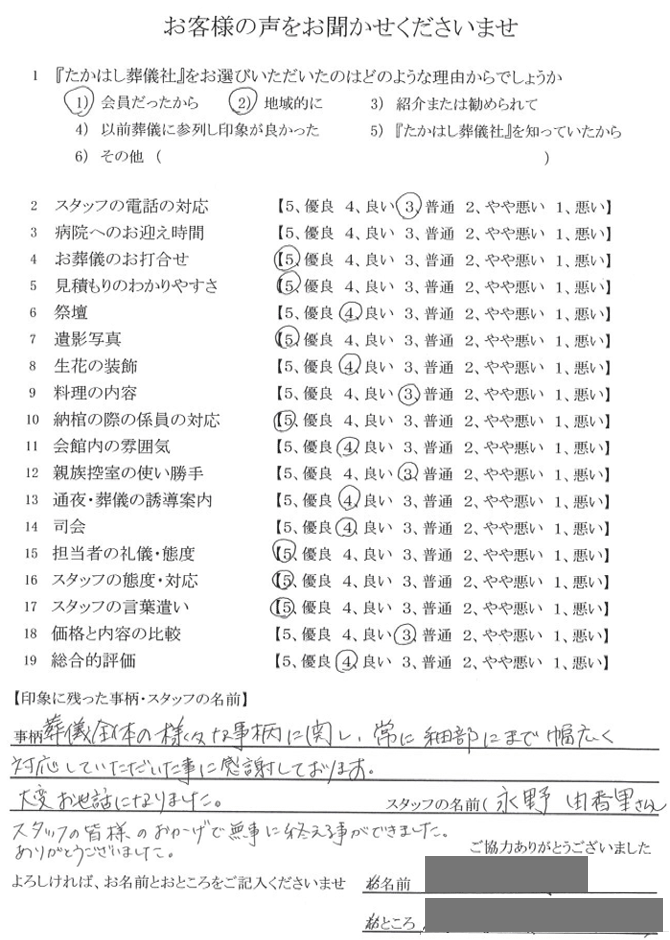 お客様の声をお聞かせくださいませ
1 『たかはし葬儀社』をお選びいただいたのはどのような理由からでしょうか
1) 会員だったから 2) 地域的に 3) 紹介または勧められて
4) 以前葬儀に参列し印象が良かった 5) 『たかはし葬儀社』を知っていたから
6) その他 ( )
2 スタッフの電話の対応 【5、優良 4、良い 3、普通 2、やや悪い 1、悪い】
3 病院へのお迎え時間 【5、優良 4、良い 3、普通 2、やや悪い 1、悪い】
4 お葬儀のお打合せ 【5、優良 4、良い 3、普通 2、やや悪い 1、悪い】
5 見積もりのわかりやすさ 【5、優良 4、良い 3、普通 2、やや悪い 1、悪い】
6 祭壇 【5、優良 4、良い 3、普通 2、やや悪い 1、悪い】
7 遺影写真 【5、優良 4、良い 3、普通 2、やや悪い 1、悪い】
8 生花の装飾 【5、優良 4、良い 3、普通 2、やや悪い 1、悪い】
9 料理の内容 【5、優良 4、良い 3、普通 2、やや悪い 1、悪い】
10 納棺の際の係員の対応 【5、優良 4、良い 3、普通 2、やや悪い 1、悪い】
11 会館内の雰囲気 【5、優良 4、良い 3、普通 2、やや悪い 1、悪い】
12 親族控室の使い勝手 【5、優良 4、良い 3、普通 2、やや悪い 1、悪い】
13 通夜・葬儀の誘導案内 【5、優良 4、良い 3、普通 2、やや悪い 1、悪い】
14 司会 【5、優良 4、良い 3、普通 2、やや悪い 1、悪い】
15 担当者の礼儀・態度 【5、優良 4、良い 3、普通 2、やや悪い 1、悪い】
16 スタッフの態度・対応 【5、優良 4、良い 3、普通 2、やや悪い 1、悪い】
17 スタッフの言葉遣い 【5、優良 4、良い 3、普通 2、やや悪い 1、悪い】
18 価格と内容の比較 【5、優良 4、良い 3、普通 2、やや悪い 1、悪い】
19 総合的評価 【5、優良 4、良い 3、普通 2、やや悪い 1、悪い】
【印象に残った事柄・スタッフの名前】
事柄 葬儀全体の様々な事柄に関し、常に細部にまで幅広く
対応していただいた事に感謝しております。
大変お世話になりました。 スタッフの名前( 永野 由香里さん
スタッフの皆様のおかげで無事に終える事ができました。
ありがとうございました。
ご協力ありがとうございました
よろしければ、お名前とおところをご記入くださいませ お名前
おところ